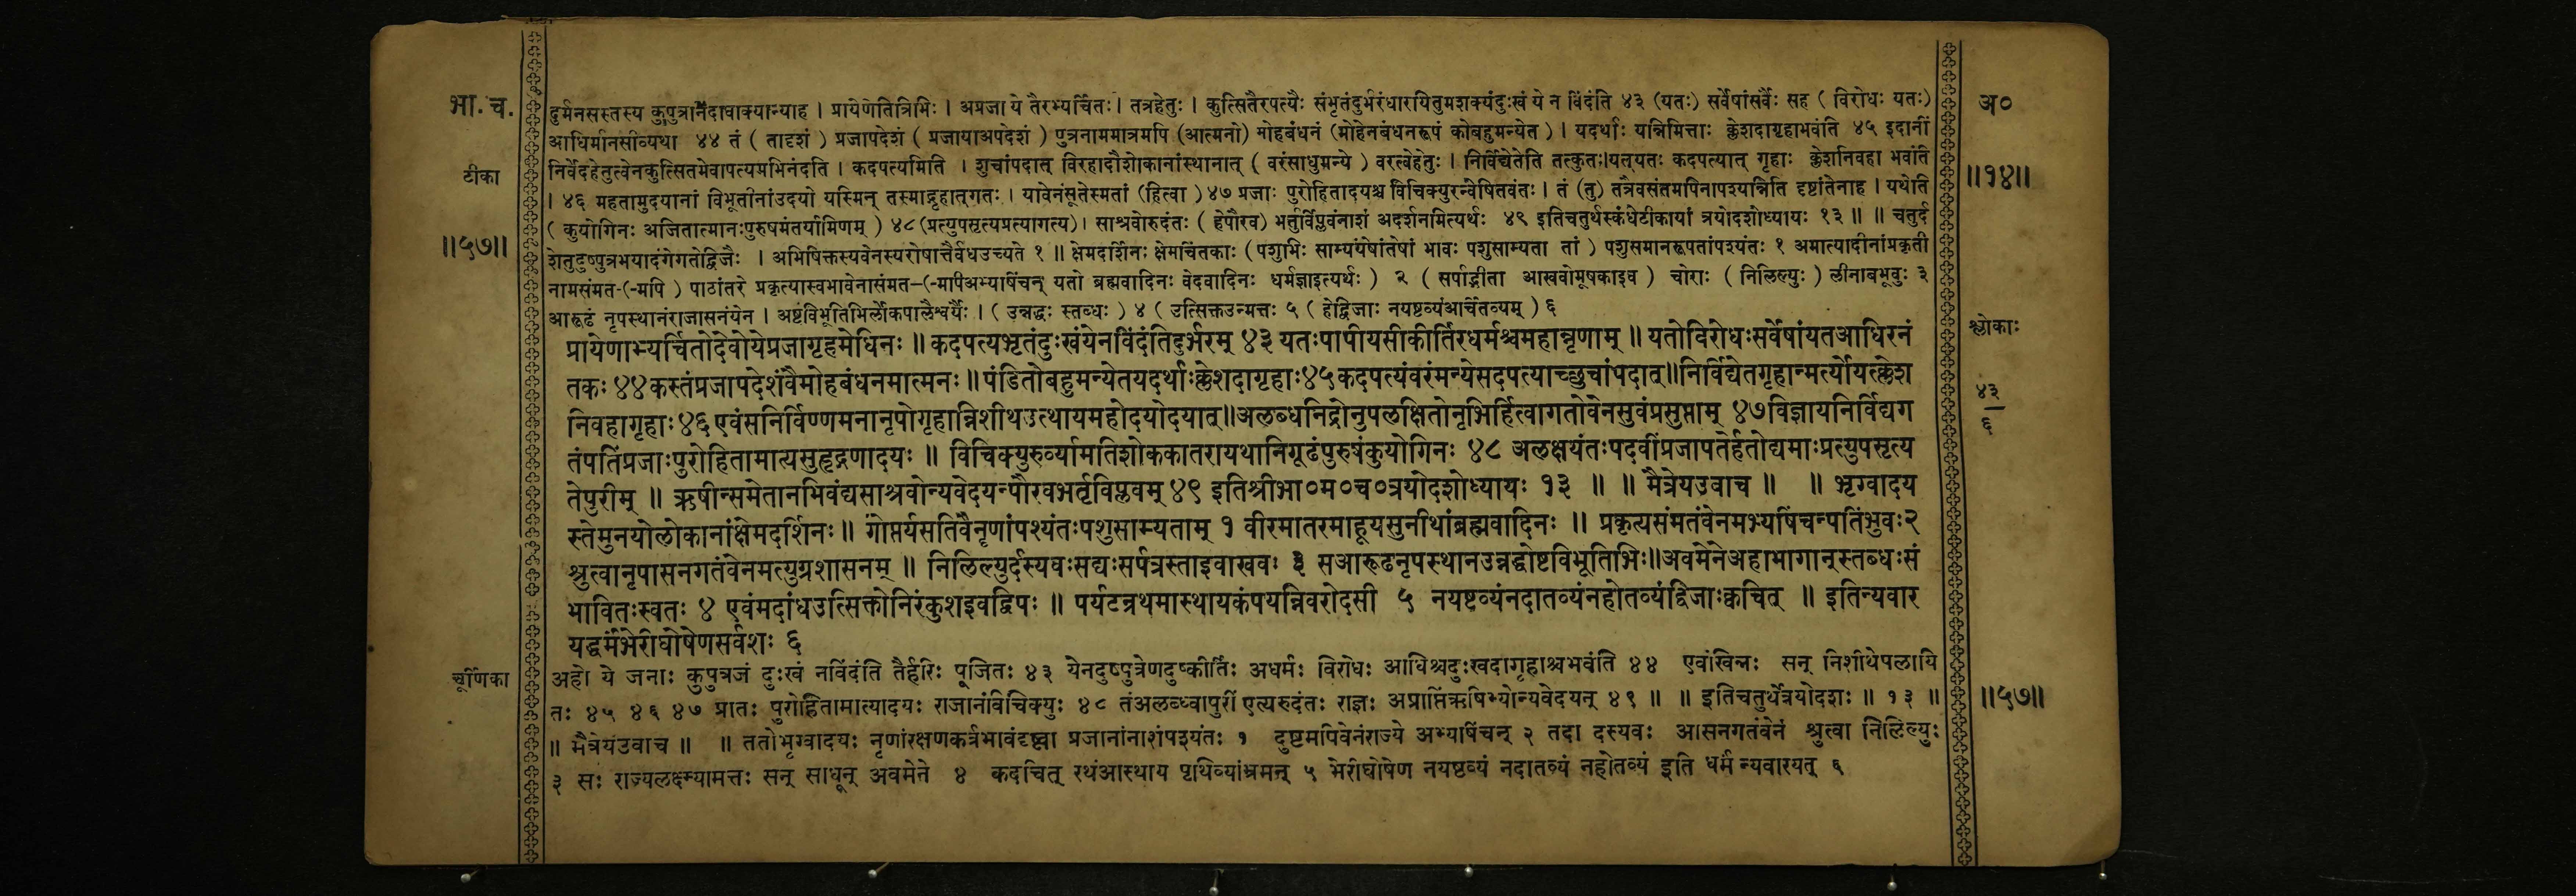 भा. च.
टीका
॥५७॥
दुर्मनसस्तस्य कुपुत्रानंदावाक्यान्याह । प्रायेणेतित्रिभिः । अप्रजा ये तैरभ्यर्चितः । तत्रहेतुः । कुत्सितैरपत्यैः संभृतंदुर्भरंधारयितुमशक्यंदुःखं ये न विंदंति ४३ (यतः) सर्वेषांसर्वैः सह ( विरोधः यतः )
आधिर्मानसीव्यथा ४४ तं ( तादृशं ) प्रजापदेशं ( प्रजायाअपदेशं ) पुत्रनाममात्रमपि (आत्मनो) मोहबंधनं (मोहेनबंधनरूपं कोबहुमन्येत ) । यदर्थाः यन्निमित्ताः क्लेशदागृहाभवंति ४५ इदानीं
निर्वेदहेतुत्वेनकुत्सितमेवापत्यमभिनंदति । कदपत्यमिति । शुचांपदात् विरहादौशोकानांस्थानात् ( वरंसाधुमन्ये ) वरत्वेहेतुः । निर्विद्येतेति तत्कुतः।यत्यतः कदपत्यात् गृहाः क्लेशनिवहा भवंति
। ४६ महतामुदयानां विभूतीनांउदयो यस्मिन् तस्माद्गृहात्गतः । यावेनंसूतेस्मतां (हित्वा ) ४७ प्रजाः पुरोहितादयश्च विचिक्युरन्वेषितवंतः । तं (तु) तत्रैवसंतमपिनापश्यन्निति दृष्टांतेनाह । यथेति
( कुयोगिनः अजितात्मानःपुरुषमंतर्यामिणम् ) ४८ (प्रत्युपसृत्यप्रत्यागत्य)। साश्रवोरुदंतः ( हेपौरव) भर्तुर्विप्लवंनाशं अदर्शनमित्यर्थः ४९ इतिचतुर्थस्कंधेटीकायां त्रयोदशोध्यायः १३ ॥ ॥ चतुर्द
शेतुदुष्पुत्रभयादंगेगतेद्विजैः । अभिषिक्तस्यवेनस्यरोषात्तैर्वधउच्यते १ ॥ क्षेमदर्शिनः क्षेमचिंतकाः ( पशुभिः साम्यंयेषांतेषां भावः पशुसाम्यता तां ) पशुसमानरूपतांपश्यंतः १ अमात्यादीनांप्रकृती
नामसंमत-(-मपि ) पाठांतरे प्रकृत्यास्वभावेनासंमत-(-मपिअभ्याषिंचन् यतो ब्रह्मवादिनः वेदवादिनः धर्मज्ञाइत्यर्थः ) २ ( सर्पाद्भीता आखवोमूषकाइव ) चोराः ( निलिल्युः ) लीनाबभूवुः ३
आरूढं नृपस्थानंराजासनंयेन । अष्टविभूतिभिर्लोकपालैश्वर्यैः । ( उन्नद्धः स्तब्धः ) ४ ( उत्सिक्तउन्मत्तः ५ ( हेद्विजाः नयष्टव्यंआर्चितव्यम् ) ६
प्रायेणाभ्यर्चितोदेवोयेप्रजागृहमेधिनः ॥ कदपत्यभृतंदुःखंयेनविंदंतिदुर्भरम् ४३ यतःपापीयसीकीर्तिरधर्मश्चमहान्नृणाम् ॥ यतोविरोधःसर्वेषांयतआधिरनं
तकः ४४ कस्तंप्रजापदेशंवैमोहबंधनमात्मनः ॥ पंडितोबहुमन्येतयदर्थाःक्लेशदागृहाः४५ कदपत्यंवरंमन्येसदपत्याच्छुचांपदात्॥निर्विद्येतगृहान्मर्त्योयत्क्लेश
निवहागृहाः४६ एवंसनिर्विण्णमनानृपोगृहान्निशीथउत्थायमहोदयोदयात्॥अलब्धनिद्रोनुपलक्षितोनृभिर्हित्वागतोवेनसुवंप्रसुप्ताम् ४७ विज्ञायनिर्विद्यग
तंपतिंप्रजाःपुरोहितामात्यसुहृद्गणादयः ॥ विचिक्युरुर्व्यामतिशोककातरायथानिगूढंपुरुषंकुयोगिनः ४८ अलक्षयंतःपदवींप्रजापतेर्हतोद्यमाःप्रत्युपसृत्य
तेपुरीम् ॥ ऋषीन्समेतानभिवंद्यसाश्रवोन्यवेदयन्पौरवभर्तृविप्लवम् ४९ इतिश्रीभा०म०च०त्रयोदशोध्यायः १३ ॥ ॥ मैत्रेयउवाच ॥ ॥ भृग्वादय
स्तेमुनयोलोकानांक्षेमदर्शिनः ॥ गोप्तर्यसतिवैनॄणांपश्यंतःपशुसाम्यताम् १ वीरमातरमाहूयसुनीथांब्रह्मवादिनः ॥ प्रकृत्यसंमतंवेनमभ्यषिंचन्पतिंभुवः२
श्रुत्वानृपासनगतंवेनमत्युग्रशासनम् ॥ निलिल्युर्दस्यवःसद्यःसर्पत्रस्ताइवाखवः ३ सआरूढनृपस्थानउन्नद्धोष्टविभूतिभिः॥अवमेनेअहाभागान्स्तब्धःसं
भावितःस्वतः ४ एवंमदांधउत्सिक्तोनिरंकुशइवद्विपः ॥ पर्यटन्रथमास्थायकंपयन्निवरोदसी ५ नयष्टव्यंनदातव्यंनहोतव्यंद्विजाःक्वचित् ॥ इतिन्यवार
यद्धर्मंभेरीघोषेणसर्वशः ६
चूर्णिका
अहो ये जनाः कुपुत्रजं दुःखं नविंदंति तैर्हरिः पूजितः ४३ येनदुष्पुत्रेणदुष्कीर्तिः अधर्मः विरोधः आधिश्चदुःखदागृहाश्चभवंति ४४ एवंखिन्नः सन् निशीथेपलायि
तः ४५ ४६ ४७ प्रातः पुरोहितामात्यादयः राजानंविचिक्युः ४८ तंअलब्ध्वापुरीं एत्यरुदंतः राज्ञः अप्राप्तिंऋषिभ्योन्यवेदयन् ४९ ॥ ॥ इतिचतुर्थेत्रयोदशः ॥ १३ ॥
॥ मैत्रेयउवाच ॥ ॥ ततोभृग्वादयः नृणांरक्षणकर्त्रभावंदृष्ट्वा प्रजानांनाशंपश्यंतः १ दुष्टमपिवेनंराज्ये अभ्यषिंचन् २ तदा दस्यवः आसनगतंवेनं श्रुत्वा निलिल्युः
३ सः राज्यलक्ष्म्यामत्तः सन् साधून् अवमेने ४ कदचित् रथंआस्थाय पृथिव्यांभ्रमन् ५ भेरीघोषेण नयष्टव्यं नदातव्यं नहोतव्यं इति धर्मं न्यवारयत् ६
अ०
॥१४॥
श्लोकाः
४३
६
॥५७॥